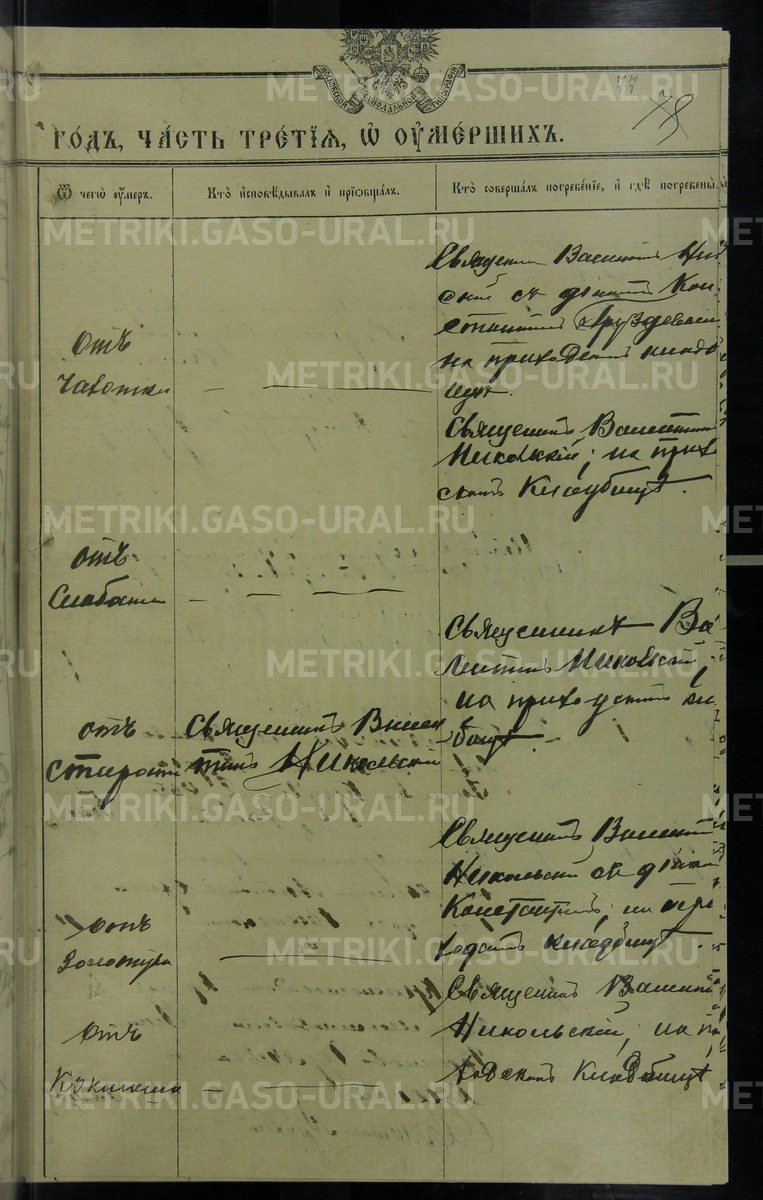 МОСКОВСКОЙ СѴНОДАЛЬНОЙ ТИПОГРАФІИ
METRIKI.GASO-URAL.RU
78
ГО́ДЪ, ЧА́СТЬ ТРЕ́ТІѦ, Ѡ ОУМЕ́РШИХЪ.
Ѿ чегѡ̀ оу́меръ.
Кто̀ и҆сповѣ́дывалъ и҆ прїѻбща́лъ.
Кто̀ соверша́лъ погребе́нїе, и҆ гдѣ̀ погребены̀.
Отъ
Чахотки
Священ Валентин Ник
скій съ діакон Кон
стантин Груздевым
на приходском кладб
ище.
отъ
Слабости
Священникъ Валентин
Никольскій; на прих
скомъ Кладбищѣ.
отъ
старости
Священникъ Вален
тинъ Никольскій
Священникъ Ва
лентинъ Никольскій,
на приходскомъ кл
бищѣ.
отъ
Золотухи
Священникъ Валентин
Никольскій съ діакон
Константин; на при
ходскомъ кладбищѣ.
Отъ
Коклюша
Священникъ Валентин
Никольскій, на п
ходскомъ Кладбищѣ